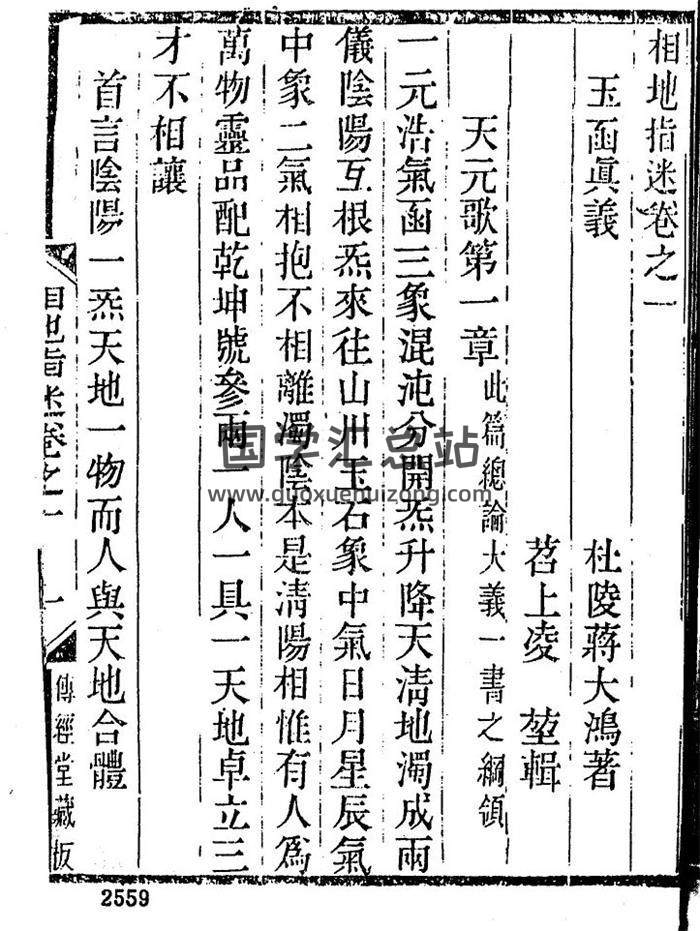 相地指迷卷之一
玉函眞義
杜陵蔣大鴻著
苕上凌 堃輯
天元歌第一章 此篇總論大義一書之綱領
一元浩氣函三象混沌分開炁升降天淸地濁成兩
儀陰陽互根炁來往山川玉石象中氣日月星辰氣
中象二氣相抱不相離濁陰本是淸陽相惟有人爲
萬物靈品配乾坤號參兩一人一具一天地卓立三
才不相讓
首言陰陽一炁天地一物而人與天地合體
相地指迷卷之一
一
傳經堂藏板
国学汇总站
www.guoxuehuizong.com
2559